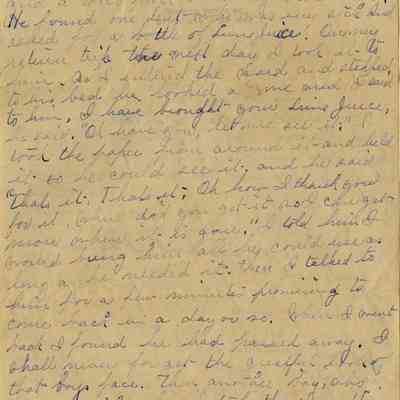 He found one
asked for a bottle of Lime juice. On my
return trip the next day I took it to
him. As I entered the ward and stepped
to his bed he looked and I said
to him, I have brought your Lime Juice,
he said "Oh have you, let me see it." I
took the paper from around it and held
it so he could see it, and he said
"Thats it, Thats it, Oh how I thank you
for it, where did you get it as I can get
more when it is gone." I told him I
would bring him all he could use as
long as he needed it. Then I talked to
him for a few minutes promising to
come back in a day or so. When I went
back I found he had passed away. I
shall never forget the grateful look of
that boys face. Then another boy, who